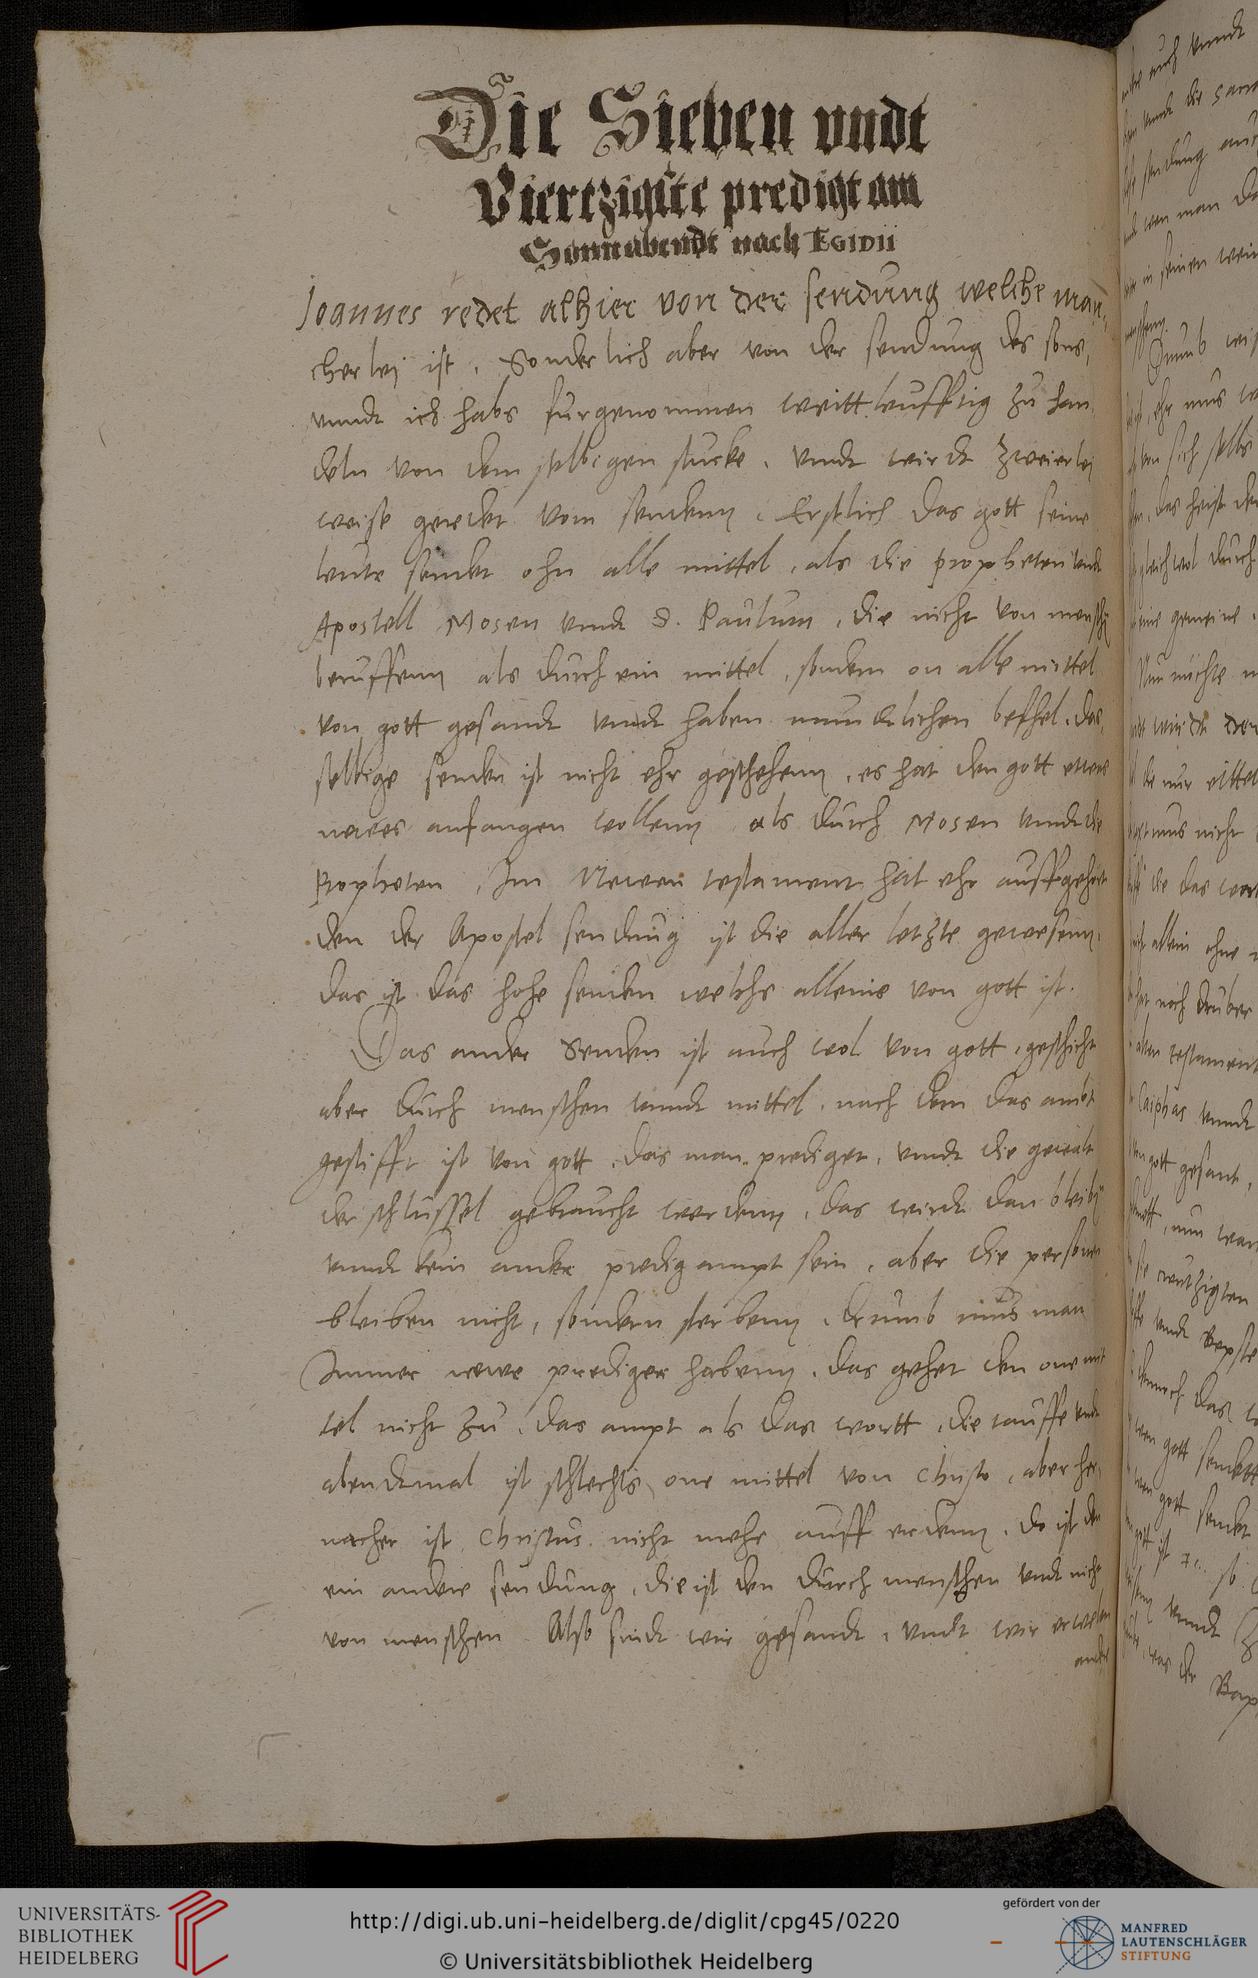 Die Sieben vndt
Viertzigste predigt am
Sonnabendt nach EGIDII
Joannes redet alhier von der sendung welche man,
cherlej ist, Sonderlich aber von der sendung des sons,
vnndt ich habs furgenommen weittleufftig zu han
deln von dem selbigen stucke. vndt wirdt zweierlej
weise geredet vom sendenn, Erstlich das gott seine
leute sendet ohn alle mittel, als die propheten vndt
Apostell Mosen vndt S. Paulum, die nicht von mensch
beruffenn als durch ein mittel, sondern on alle mittel
von gott gesandt vndt haben mundtlichen befhel. das
selbige senden ist nicht ehr geschehenn, es hat den gott etwas
newes anfangen wollenn als durch Mosen vnndt die
Propheten, Im Newen testament hat ehr auffgehort
den der Apostel sendung ist die aller letzte gewesenn.
das ist das hohe senden welchs alleine von gott ist.
Das ander Senden ist auch wol von gott, geschicht
aber durch menschen vnndt mittel, nach dem das ambt
gestifft ist von gott, das man prediget, vndt die gewalt
der schlussel gebraucht werdenn, das wirdt dan bleibn
vnndt kein ander predig ampt sein, aber die personen
bleiben nicht, sondern sterbenn, drumb mus man
Immer newe prediger habenn, das gehet den one mit
tel nicht zu, das ampt als das wortt, die tauffe vndt
abendtmal ist schlechts one mittel von Christo, aber her,
nacher ist Christus nicht mehr auff erdenn, do ist den
ein andere sendung, die ist den durch menschen vndt nicht
von menschen Also sindt wir gesandt, vndt wir erwelen
ander
UNIVERSITÄTS-
BIBLIOTHEK
HEIDELBERG
http://digi.ub.uni-heidelberg.de/diglit/cpg45/0220
© Universitätsbibliothek Heidelberg
gefördert von der
MANFRED
LAUTENSCHLÄGER
STIFTUNG